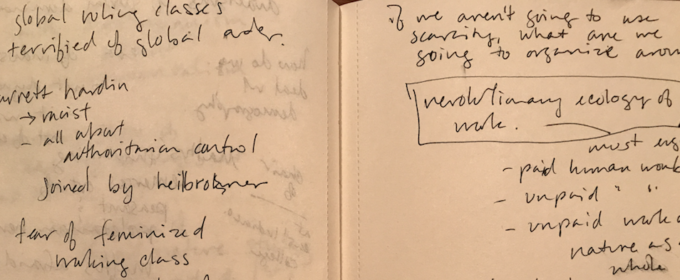 global ruling classes
terrified of global order.
arrett hardin
→ racist
- all about
authoritarian control
Joined by heilbroner
fear of feminized
working class
if we aren't going to use
scarcity, what are we
going to organize aroun
revolutionary ecology of
work.
must
- paid human work
- unpaid " "
- unpaid work
nature as
whole